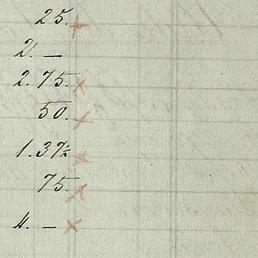 25.
2. —
2.75.
50.
1.37½
75.
4. —